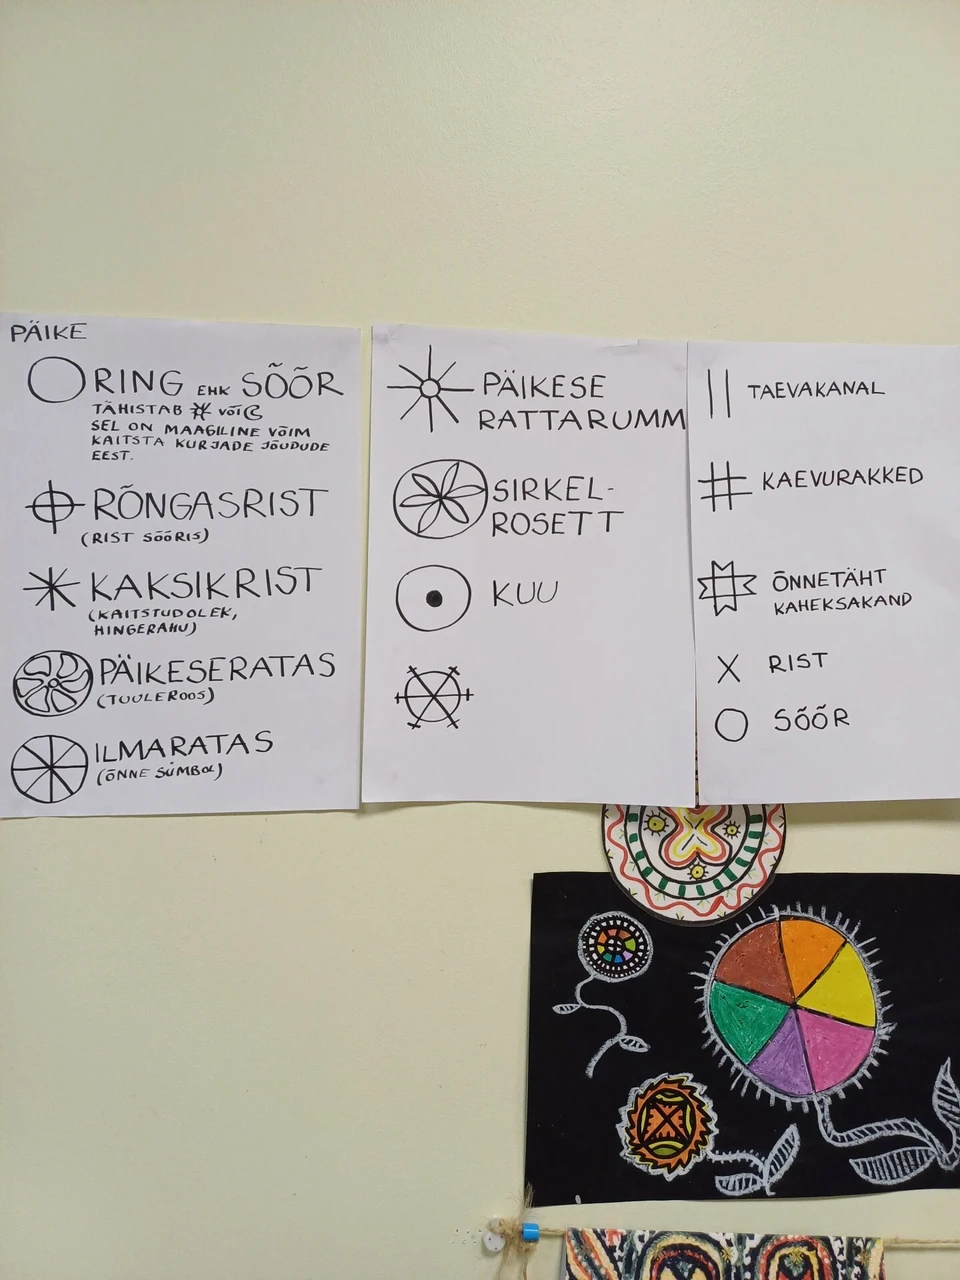 PÄIKE
RING EHK SÕÕR
TÄHISTAB VÕI
SEL ON MAAGILINE VÕIM
KAITSTA KURJADE JÕUDUDE
EEST.
RÕNGASRIST
(RIST SÕÕRIS)
KAKSIKRIST
(KAITSTUD OLEK,
HINGERAHU)
PÄIKESERATAS
(TUULEROOS)
ILMARATAS
(ÕNNE SÜMBOL)
PÄIKESE
RATTARUMM
SIRKEL-
ROSETT
KUU
TAEVAKANAL
KAEVURAKKED
ÕNNETÄHT
KAHEKSAKAND
RIST
SÕÕR